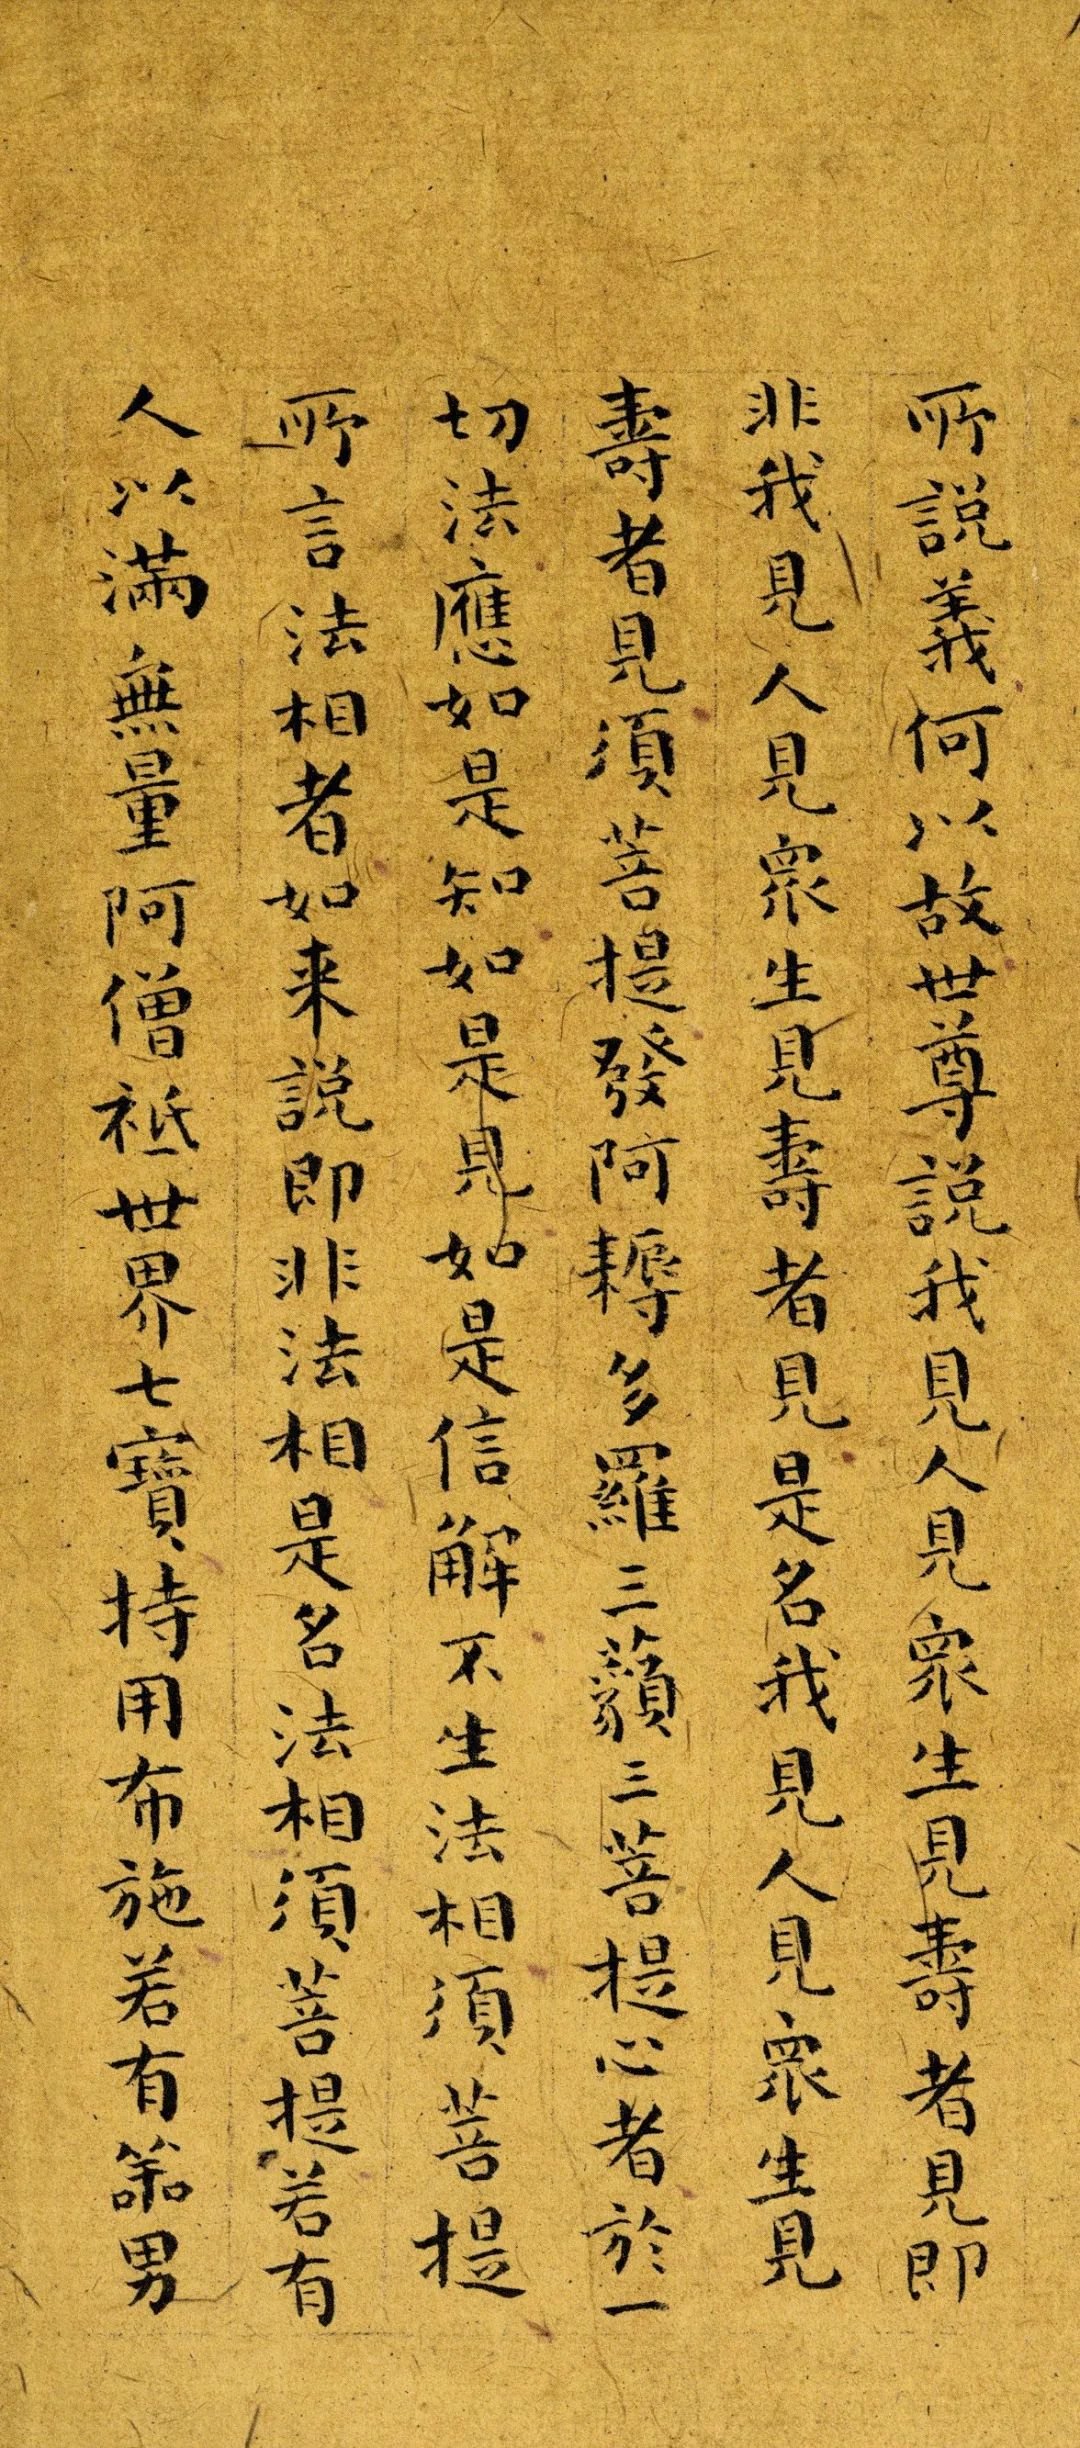 所説義何以故世尊説我見人見衆生見壽者見即
非我見人見衆生見壽者見是名我見人見衆生見
壽者見須菩提發阿耨多羅三藐三菩提心者於一
切法應如是知如是見如是信解不生法相須菩提
所言法相者如来説即非法相是名法相須菩提若有
人以滿無量阿僧祇世界七寶持用布施若有善男